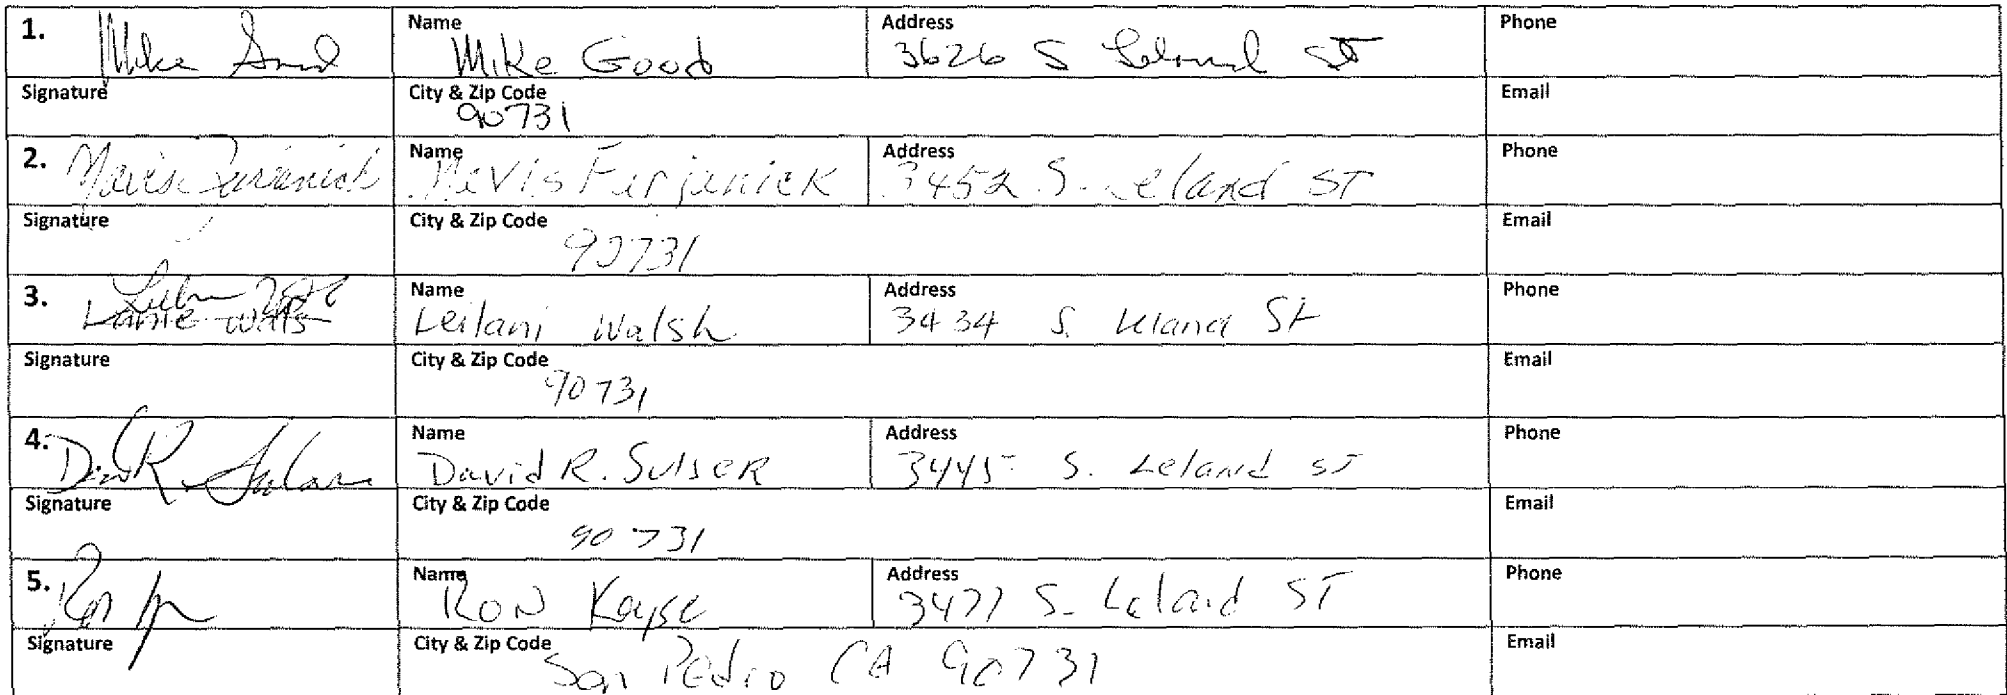 1. Mike Good Name Mike Good Address 3626 S Leland St Phone
Signature City & Zip Code 90731 Email
2. Name Mevis Furjanick Address 3452 S. Leland ST Phone
Signature City & Zip Code 90731 Email
3. Name Leilani Walsh Address 3434 S. Leland St Phone
Signature City & Zip Code 90731 Email
4. Name David R. Sulser Address 3445 S. Leland ST Phone
Signature City & Zip Code 90731 Email
5. Ron Name RON Kayse Address 3477 S. Leland ST Phone
Signature City & Zip Code San Pedro CA 90731 Email